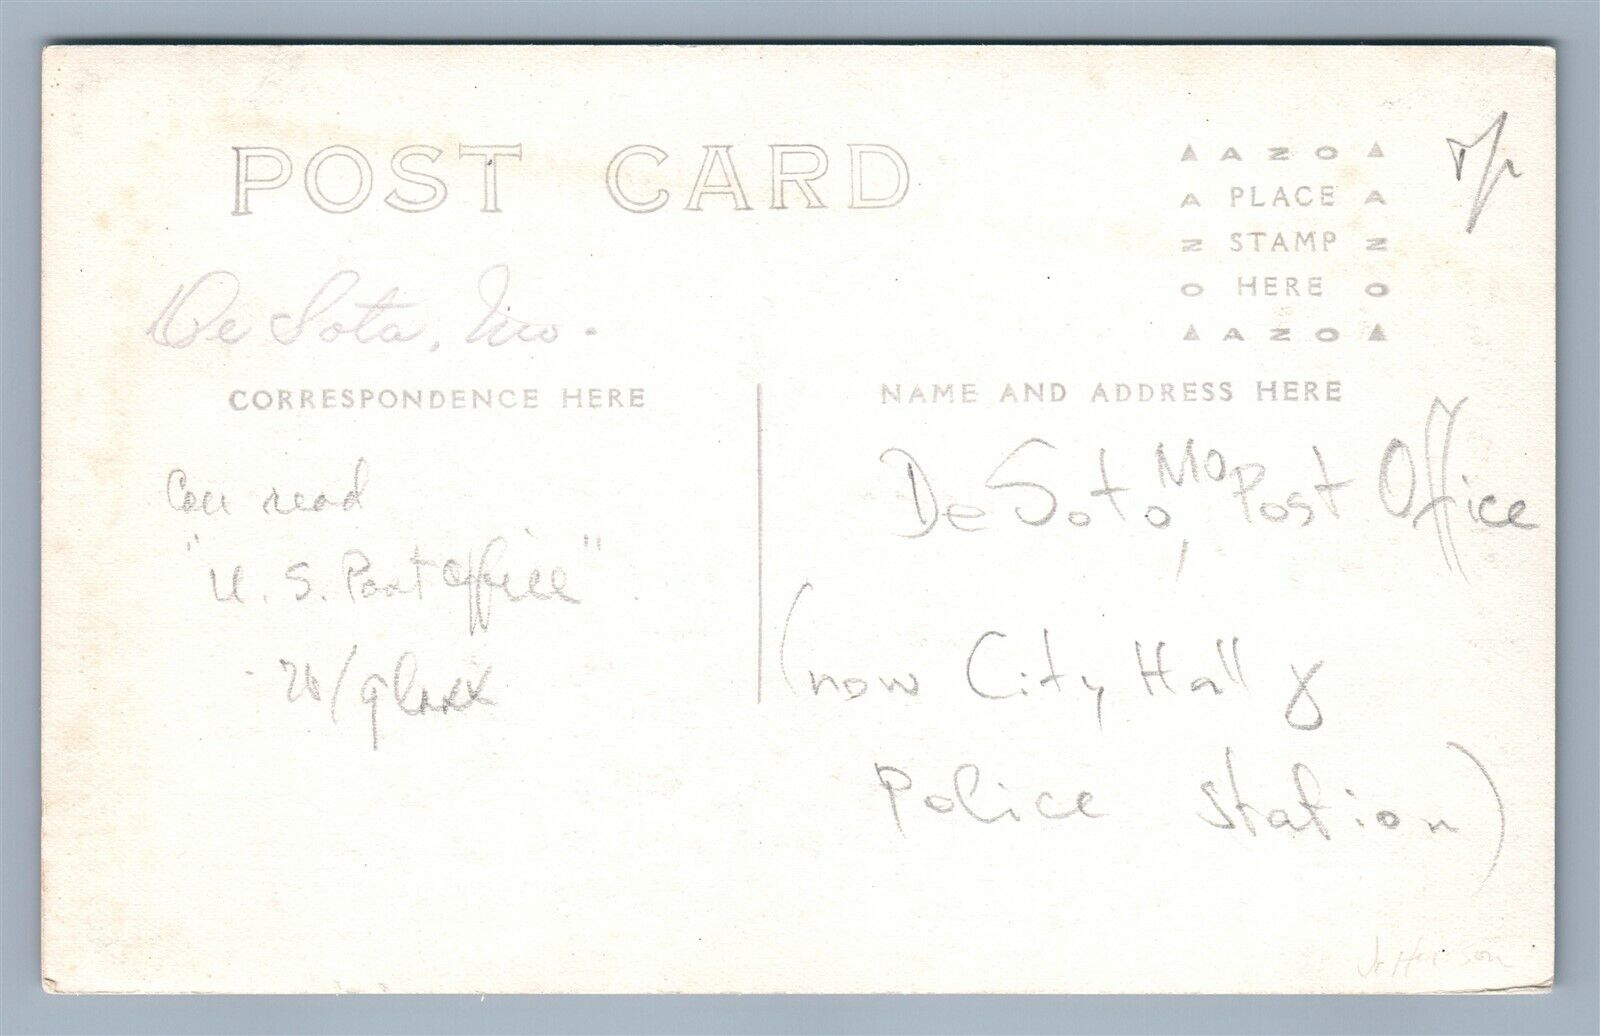 POST CARD
▲ A Z O ▲
A PLACE A
Z STAMP Z
O HERE O
▲ A Z O ▲
De Soto, Mo.
CORRESPONDENCE HERE
Can read
"U.S. Post Office"
w/glass
NAME AND ADDRESS HERE
De Soto, Mo Post Office
(now City Hall &
Police Station)
Jefferson